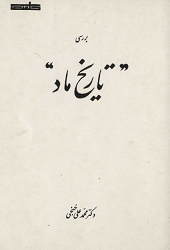 بررسی
”تاریخ ماد“
دکتر محمد علی خنجی